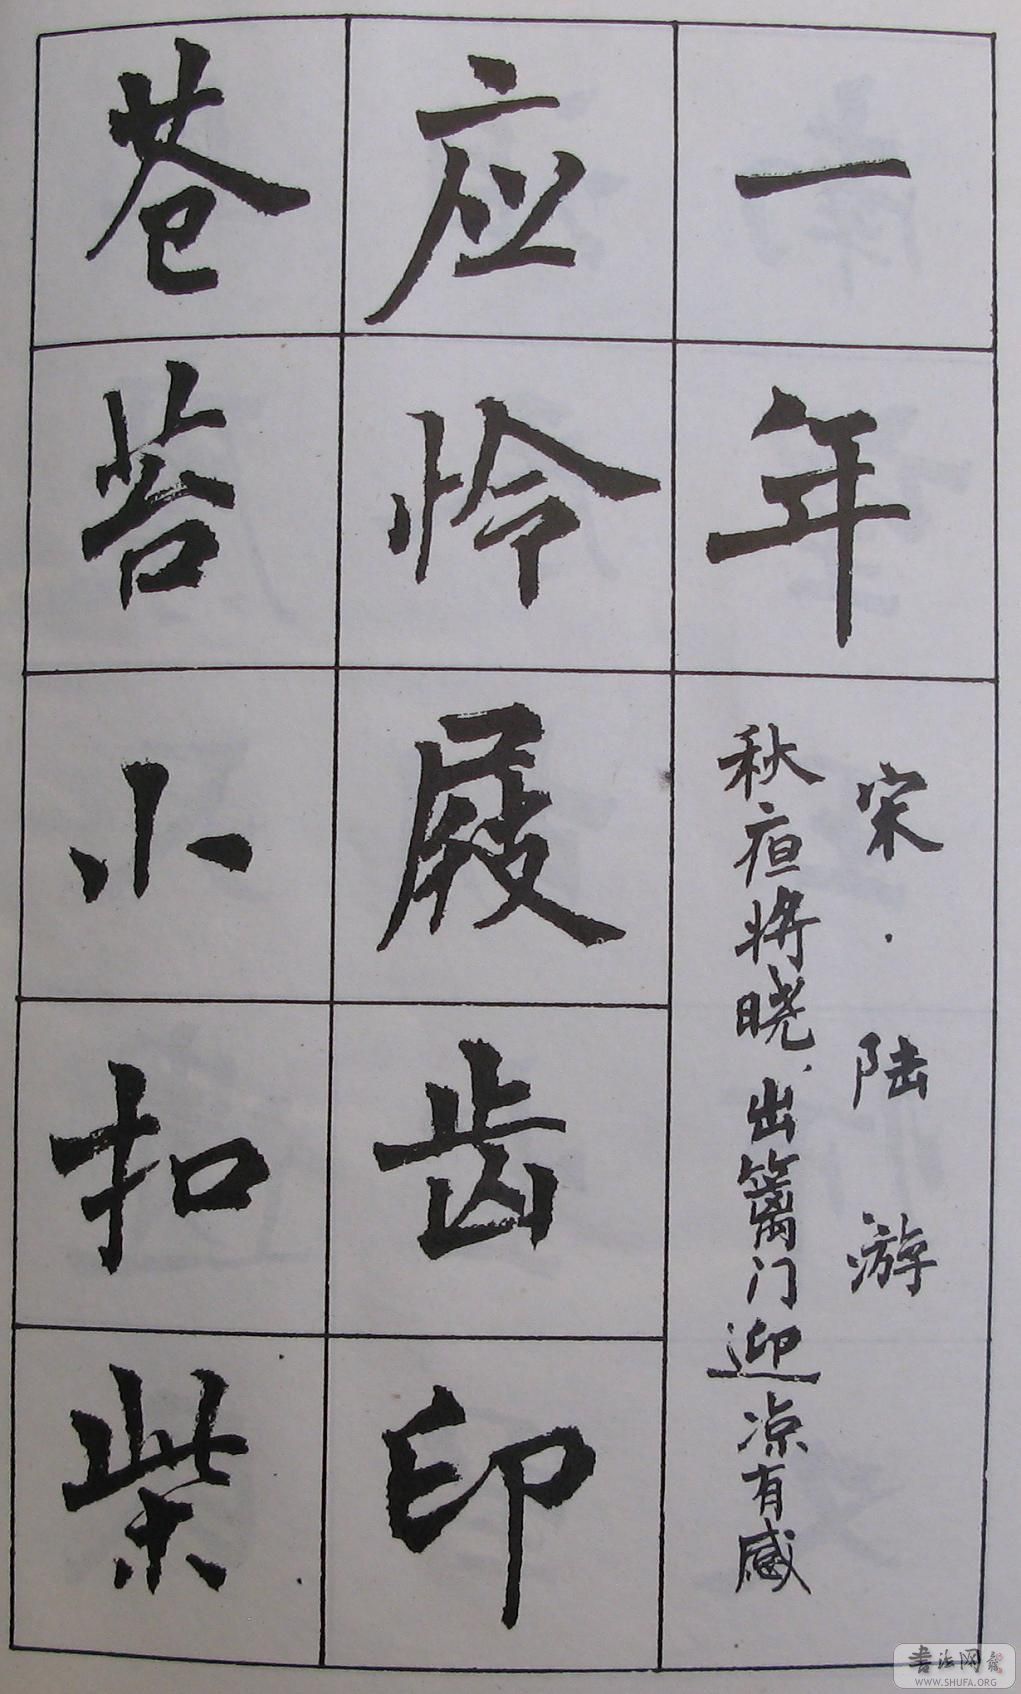 一年
宋·陆游
秋夜将晓、出篱门迎凉有感
应怜屐齿印
苍苔小扣柴
书法网
WWW.SHUFA.ORG